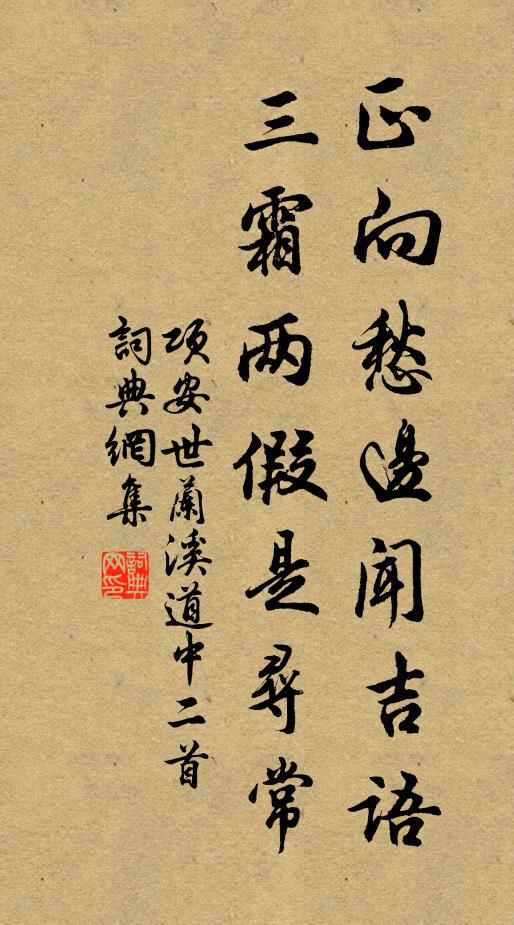 正向愁邊闻吉语
三霜两假是尋常
項安世蘭溪道中二首
詞典網集
詞典
网印